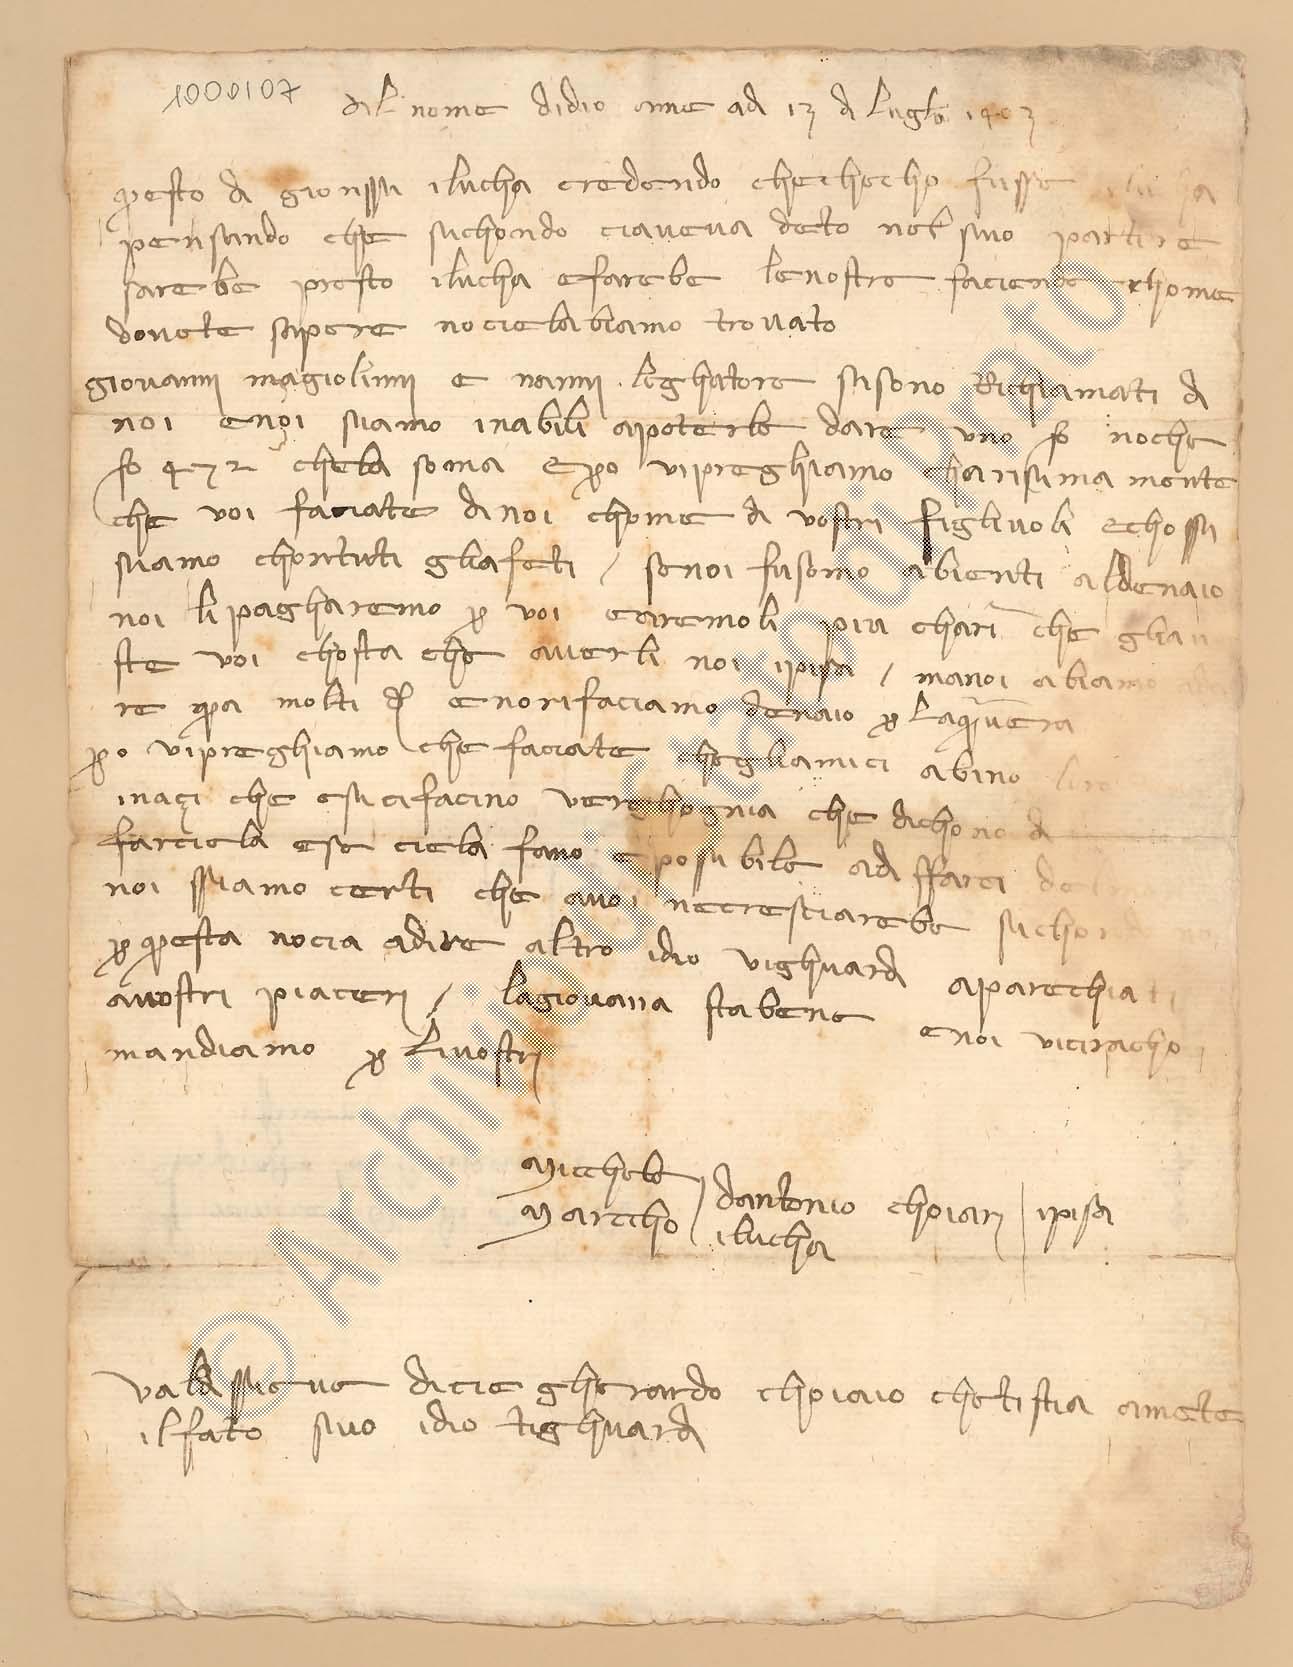 1000107
al nome didio ame ad 13 di luglo 1403
questo di gionssi ilucha credendo chechecho fusse ilucha
pensando che sichondo ciaveva deto nel suo partire
sarebe presto ilucha efarebe lenostre faciende chome
dovete sapere nocielabiamo trovato
giovanni magiolinni e nanni leghatore sisono Richiamati di
noi enoi siamo inabili apoterlo dare uno fo noche
fo 472 chela soma epo vipreghiamo charisima mente
che voi faciate dinoi chome di vostri figliuoli echossi
siamo chontuti gliafeti / senoi fusomo abienti aldenaio
noi li pagharemo p voi eteremoli piu chari che gliav
ste voi chosta che averli noi ipisa / manoi abiamo
re qua molti d enorifaciamo denaio p laquera
po vipreghiamo che faciate chegliamici abino
inaçi che esicifacino verghognia che dichono di
farciela ese ciela fano eposibile adi ffarci
noi ssiamo certi che avoi necresciarebe sichondo
p questa nocia adire altro idio vighuardi aparechiati
avostri piaceri / lagiovana stabene enoi viciracho
mandiamo p livostri
Michele
Marcho / dantonio choiari / ipisa
ilucha
valdssieve dicie gherardo choiaio chetistia amete
ilfato suo idio tighuardi
© Archivio di Stato di Prato